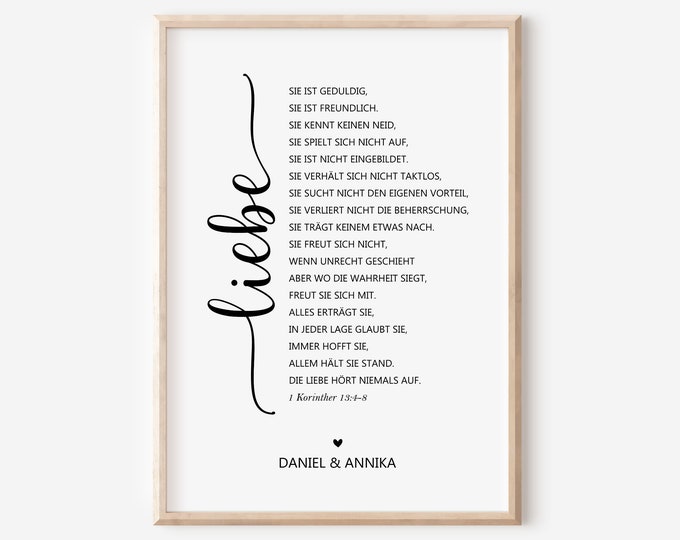 liebe
SIE IST GEDULDIG,
SIE IST FREUNDLICH.
SIE KENNT KEINEN NEID,
SIE SPIELT SICH NICHT AUF,
SIE IST NICHT EINGEBILDET.
SIE VERHÄLT SICH NICHT TAKTLOS,
SIE SUCHT NICHT DEN EIGENEN VORTEIL,
SIE VERLIERT NICHT DIE BEHERRSCHUNG,
SIE TRÄGT KEINEM ETWAS NACH.
SIE FREUT SICH NICHT,
WENN UNRECHT GESCHIEHT
ABER WO DIE WAHRHEIT SIEGT,
FREUT SIE SICH MIT.
ALLES ERTRÄGT SIE,
IN JEDER LAGE GLAUBT SIE,
IMMER HOFFT SIE,
ALLEM HÄLT SIE STAND.
DIE LIEBE HÖRT NIEMALS AUF.
1 Korinther 13:4-8
DANIEL & ANNIKA